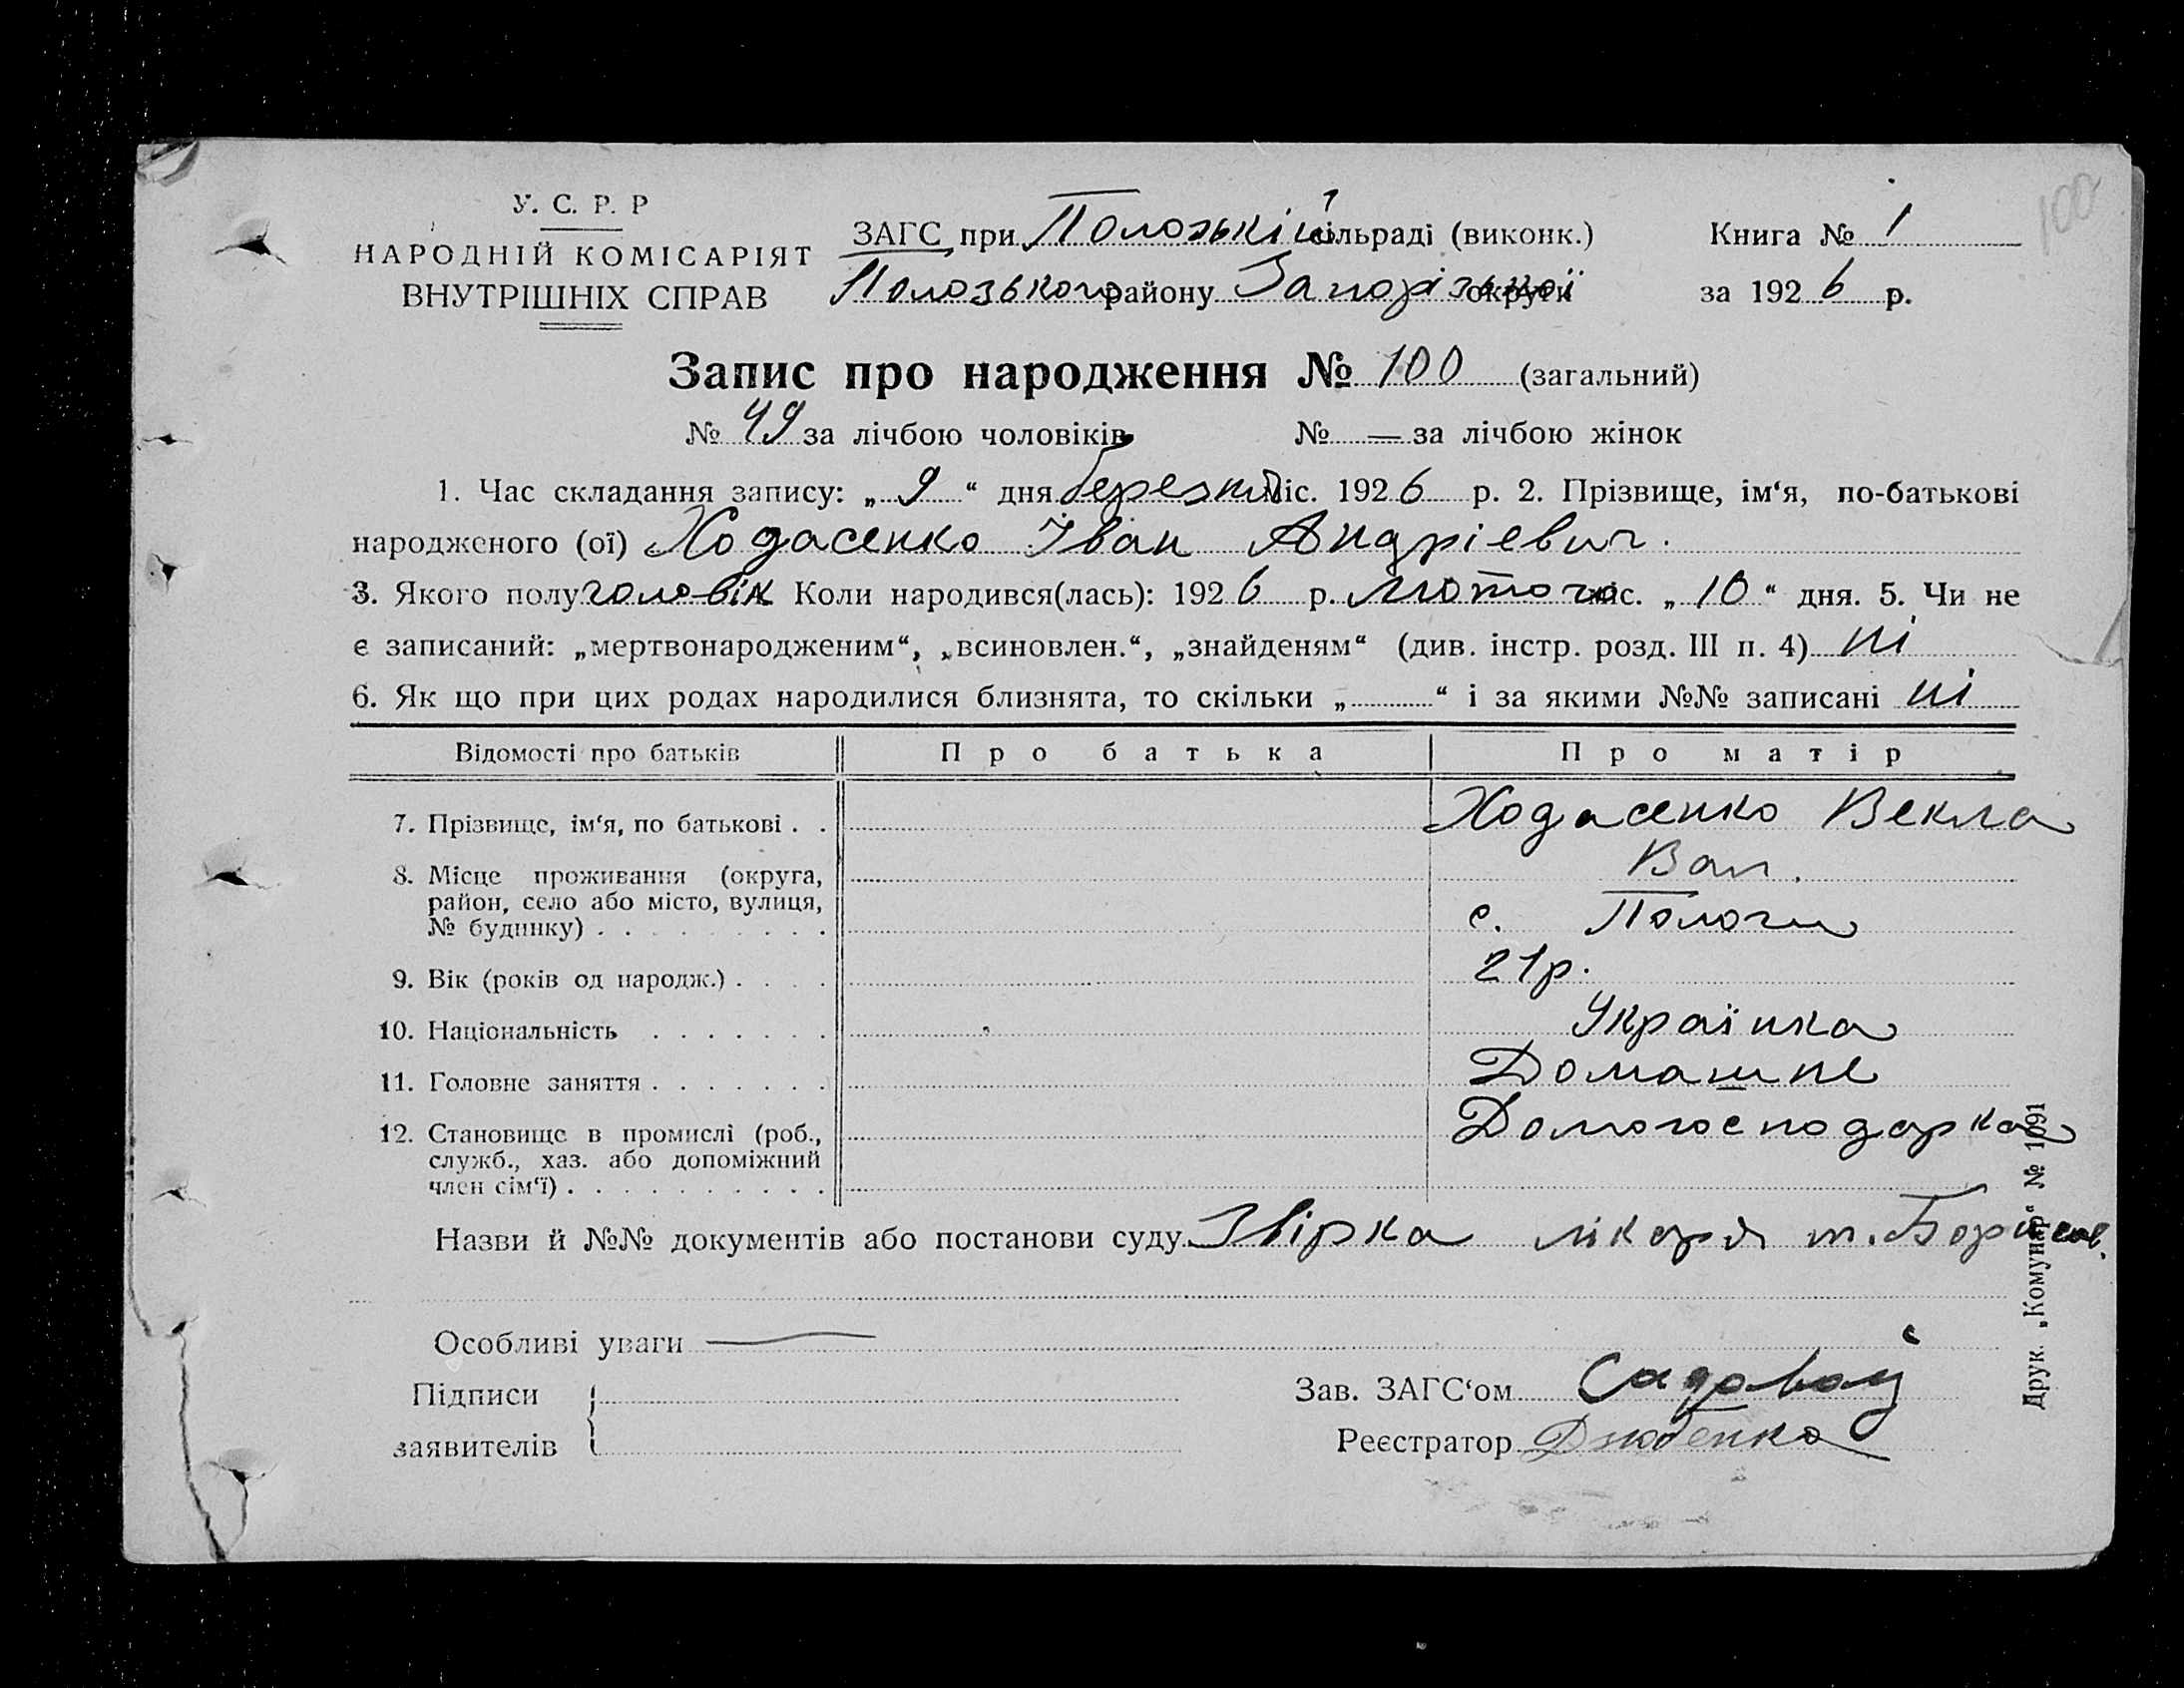 У. С. Р. Р
НАРОДНІЙ КОМІСАРІЯТ
ВНУТРІШНІХ СПРАВ
ЗАГС при Пологзькій сільраді (виконк.)
Пологзького району Запорізької округи
Книга № 1
за 1926 р.
100
Запис про народження № 100 (загальний)
№ 49 за лічбою чоловіків № — за лічбою жінок
1. Час складання запису: „ 9 “ дня березня міс. 1926 р. 2. Прізвище, ім‘я, по-батькові
народженого (ої) Ходасенко Іван Андрієвич.
3. Якого полу чоловік Коли народився(лась): 1926 р. Лютого міс. „ 10 “ дня. 5. Чи не
є записаний: „мертвонародженим“, „всиновлен.“, „знайденям“ (див. інстр. розд. III п. 4) ні
6. Як що при цих родах народилися близнята, то скільки „ “ і за якими №№ записані ні
Відомості про батьків Про батька Про матір
7. Прізвище, ім‘я, по батькові . . Ходасенко Векла
Вал.
8. Місце проживання (округа,
район, село або місто, вулиця,
№ будинку) . . . . . . . . . с. Пологи
9. Вік (років од народж.) . . . . 21р.
10. Національність . . . . . . . Українка
11. Головне заняття . . . . . . . Домашнє
12. Становище в промислі (роб., Домогосподарка
служб., хаз. або допоміжний
член сім‘ї) . . . . . . . . . .
Назви й №№ документів або постанови суду Звірка лікаря т. Борисов.
Особливі уваги —
Підписи
заявителів
Зав. ЗАГС‘ом Садовой
Реєстратор
Друк. „Комунар“ № 1091